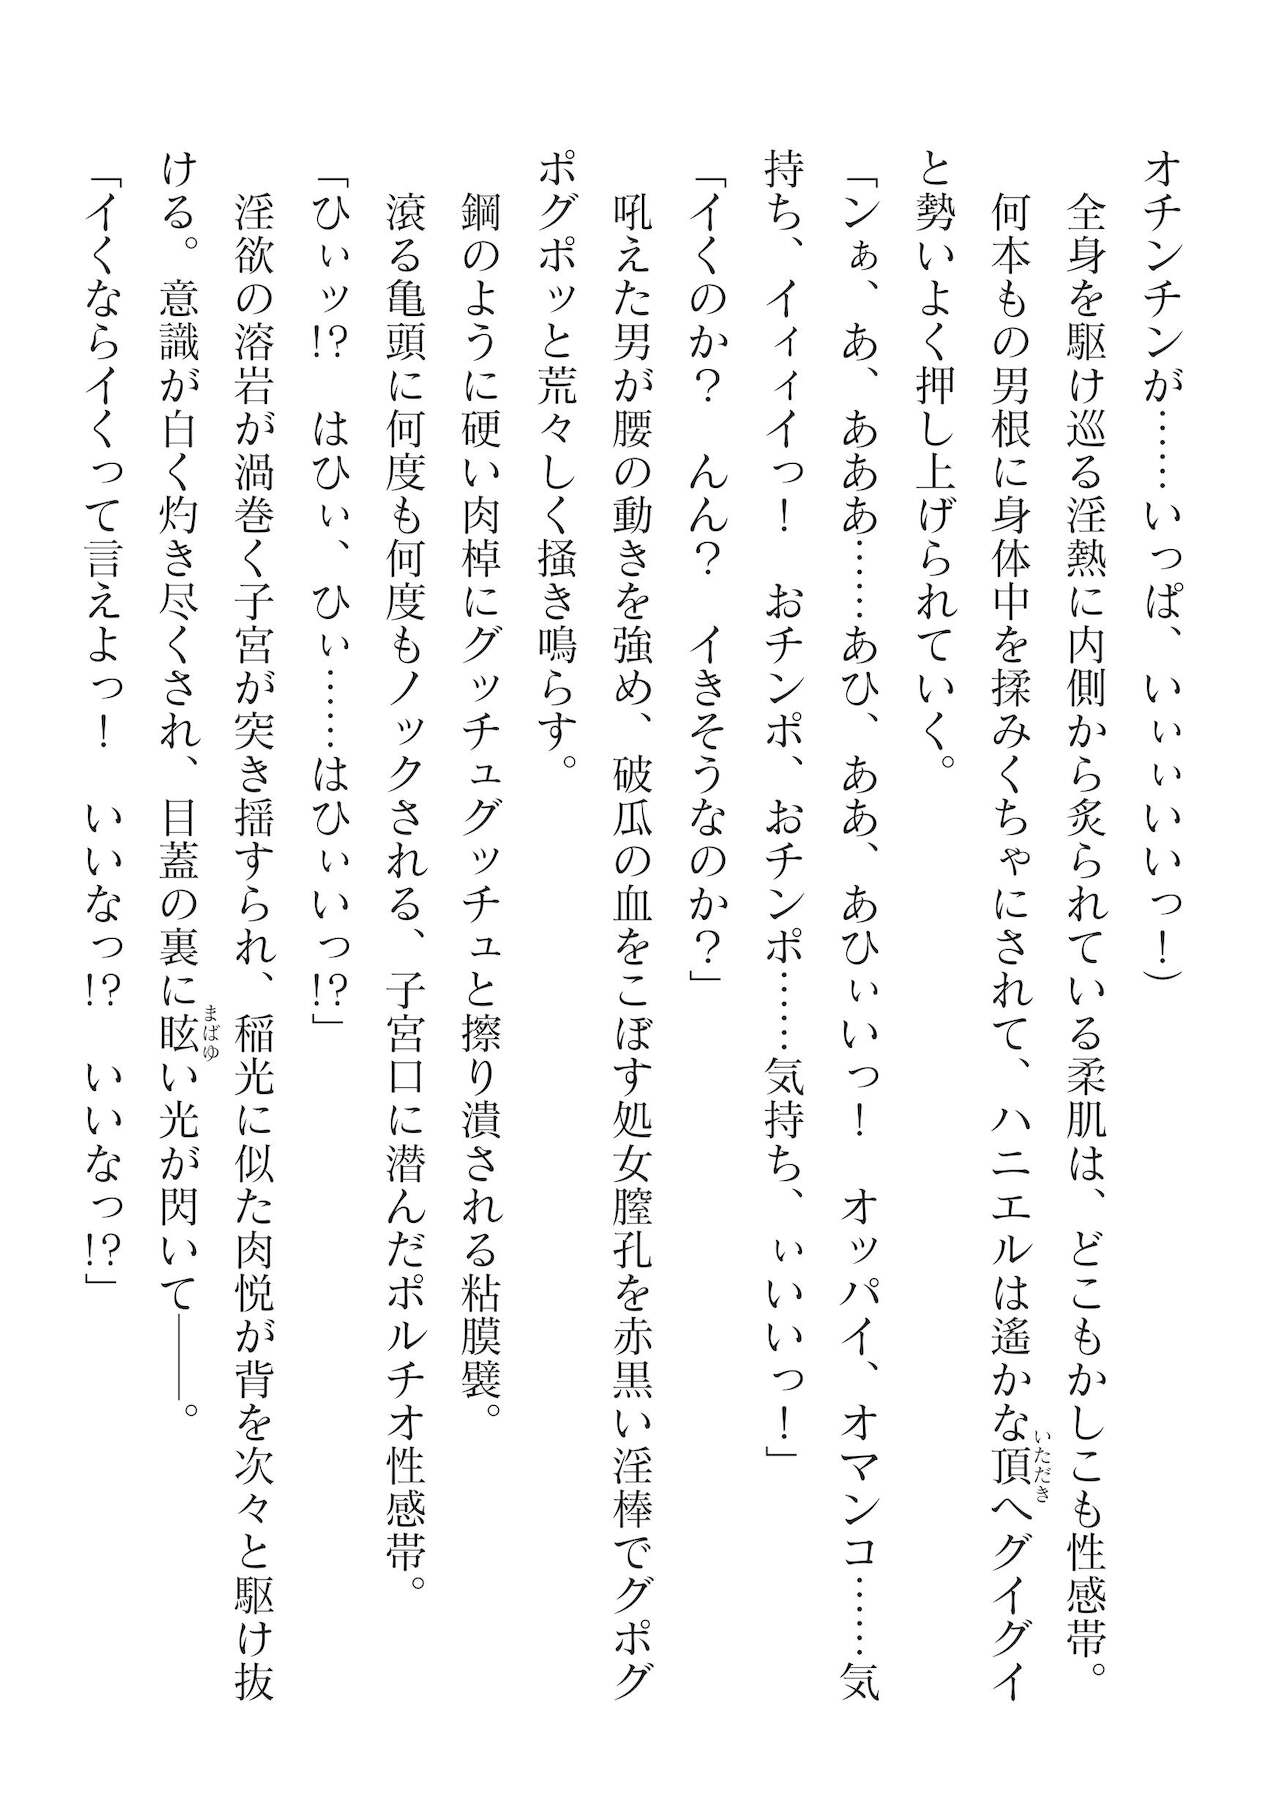 オチンチンが……いっぱ、いぃぃいいっ！）
全身を駆け巡る淫熱に内側から炙られている柔肌は、どこもかしこも性感帯。
何本もの男根に身体中を揉みくちゃにされて、ハニエルは遙かな頂いただきへグイグイ
と勢いよく押し上げられていく。
「ンぁ、あ、あああ……あひ、ああ、あひぃいっ！　オッパイ、オマンコ……気
持ち、イィィイっ！　おチンポ、おチンポ……気持ち、ぃいいっ！」
「イくのか？　んん？　イきそうなのか？」
吼えた男が腰の動きを強め、破瓜の血をこぼす処女膣孔を赤黒い淫棒でグポグ
ポグポッと荒々しく掻き鳴らす。
鋼のように硬い肉棹にグッチュグッチュと擦り潰される粘膜襞。
滾る亀頭に何度も何度もノックされる、子宮口に潜んだポルチオ性感帯。
「ひぃッ!?　はひぃ、ひぃ……はひぃいっ!?」
淫欲の溶岩が渦巻く子宮が突き揺すられ、稲光に似た肉悦が背を次々と駆け抜
ける。意識が白く灼き尽くされ、目蓋の裏に眩まばゆい光が閃いて――。
「イくならイくって言えよっ！　いいなっ!?　いいなっ!?」